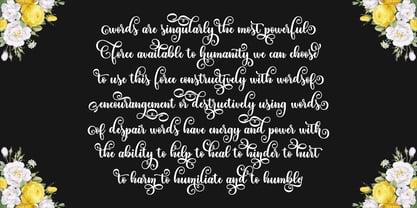 words are singularly the most powerful
force available to humanity we can choose
to use this force constructively with wordsof
encouragement or destructively using words
of despair words have energy and power with
the ability to help to heal to hinder to hurt
to harm to humiliate and to humble